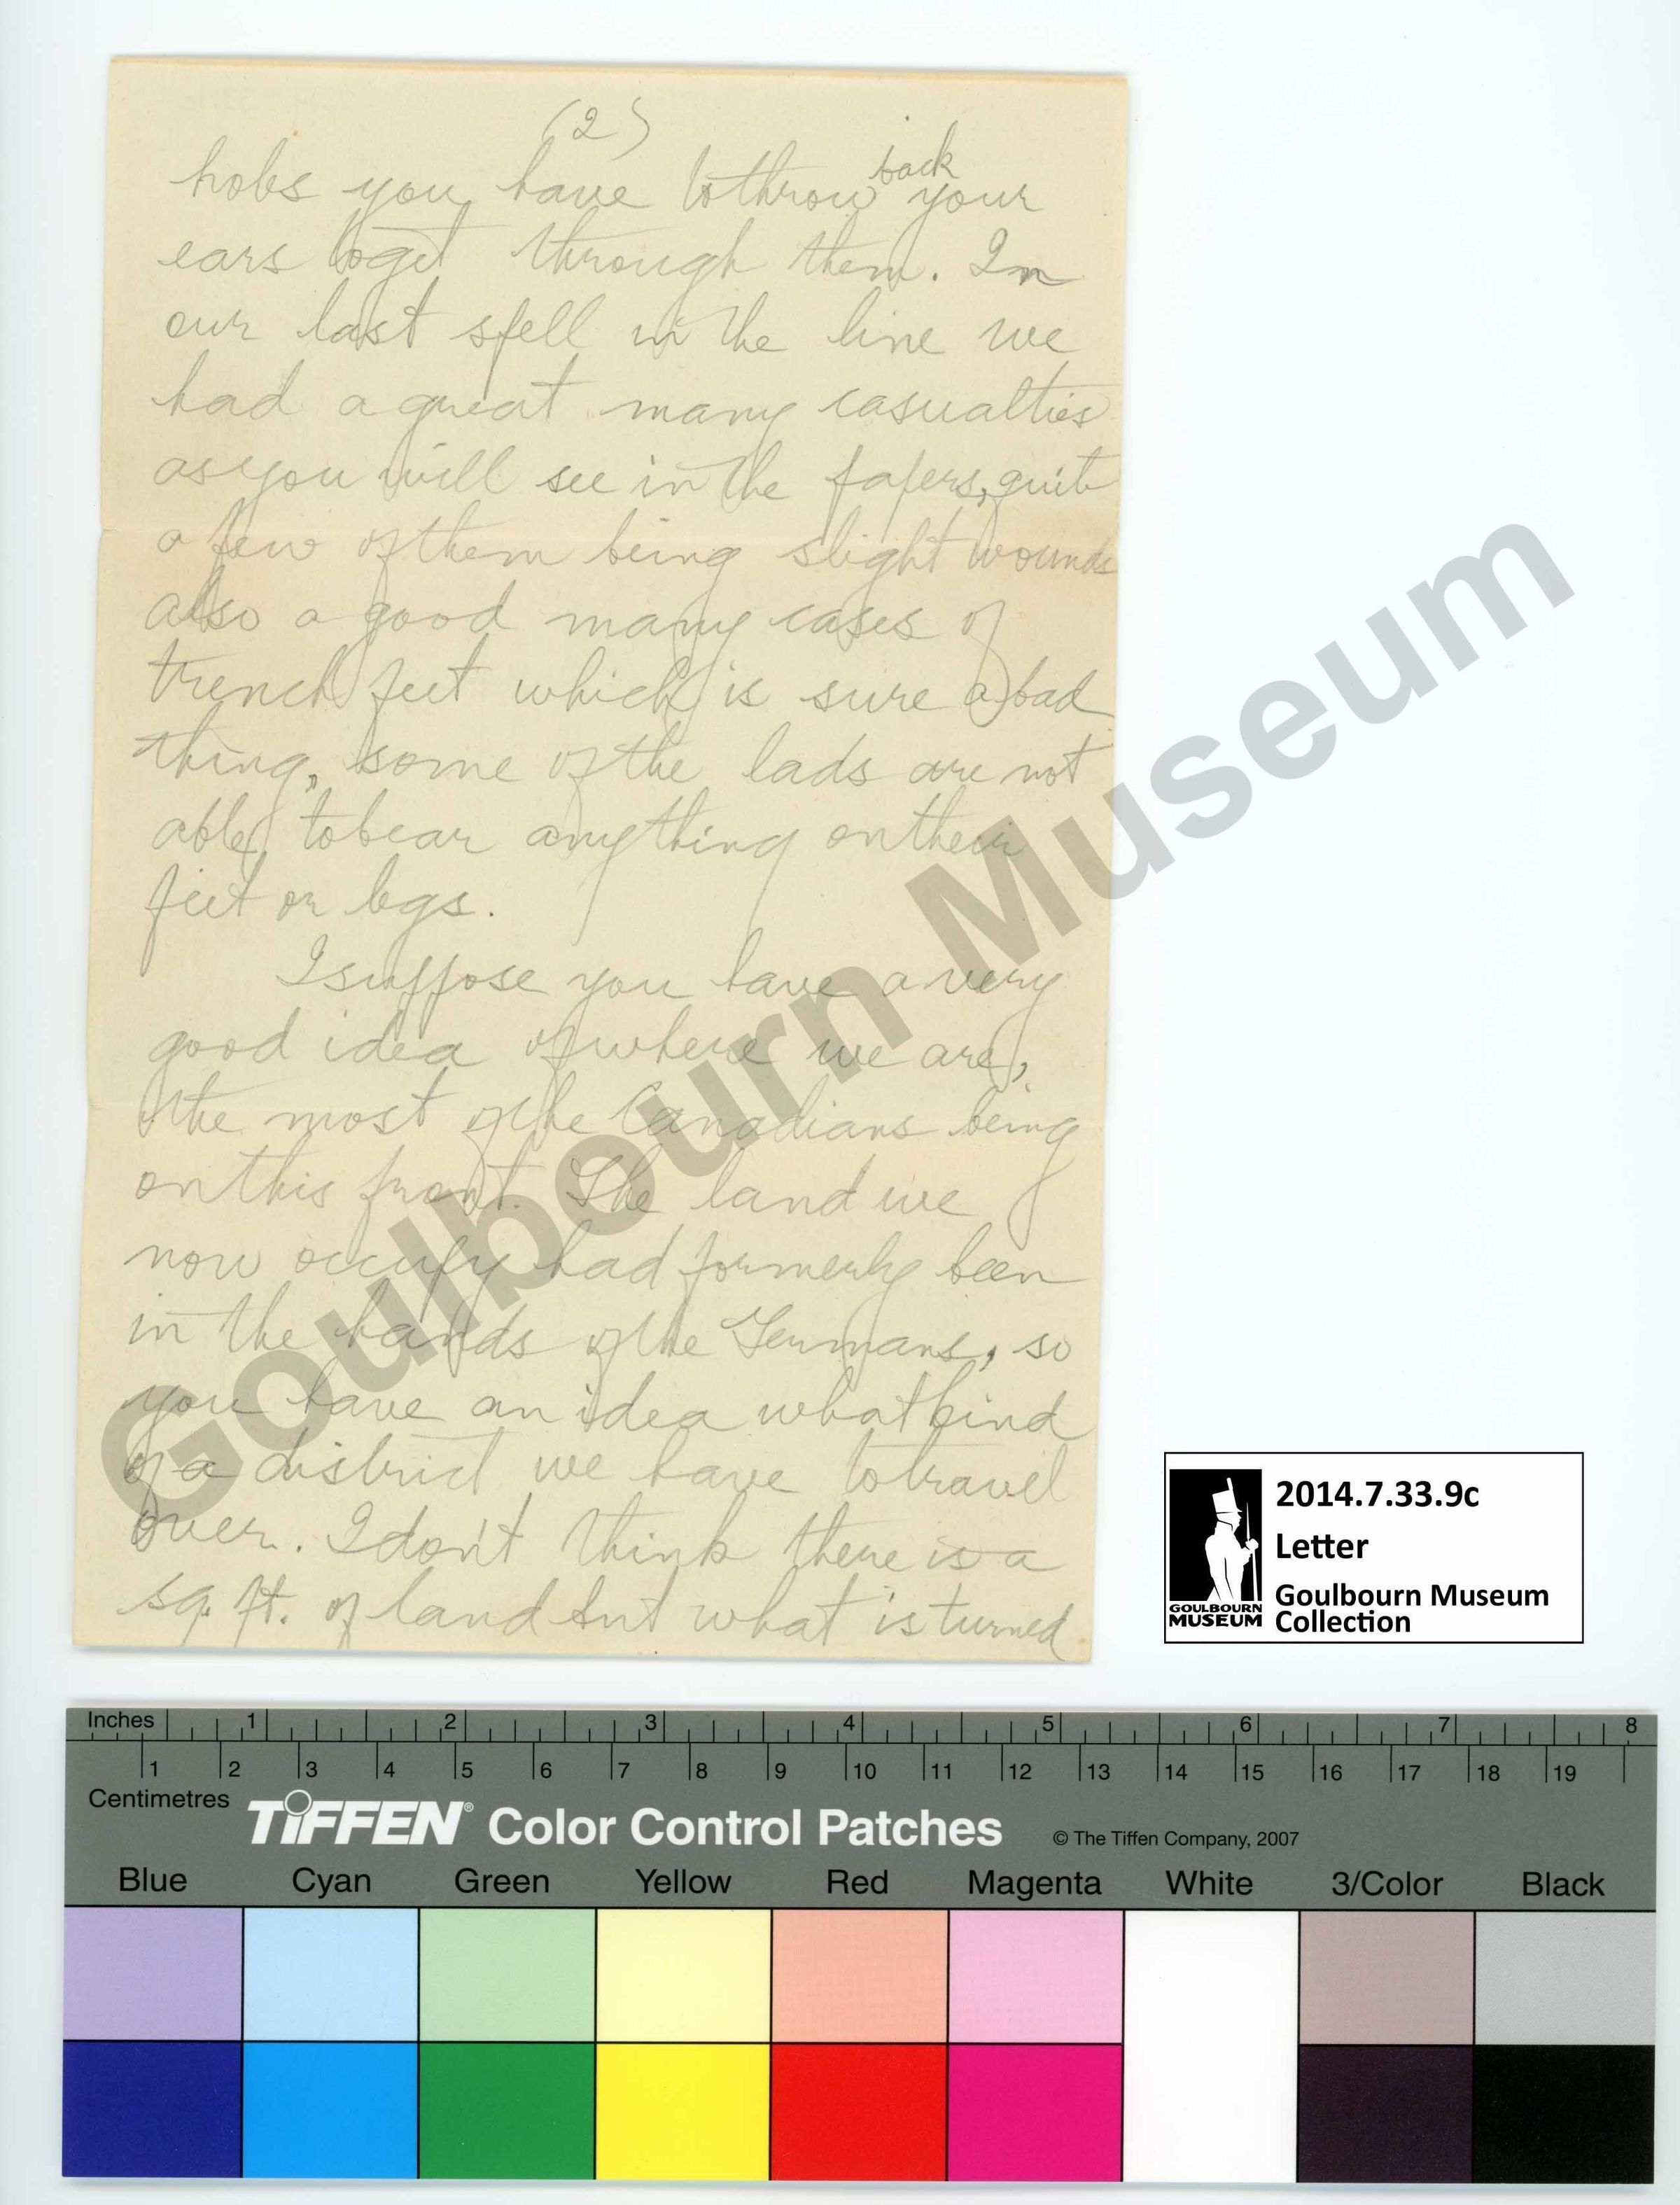 (2)
hobs you have to throw back your
ears to get through them. In
our last spell in the line we
had a great many casualties
as you will see in the papers, quite
a few of them being slight wounds
also a good many cases of
trench feet which is sure a bad
thing, some of the lads are not
able to bear anything on their
feet or legs.
I suppose you have a very
good idea of where we are,
the most of the Canadians being
on this front. The land we
now occupy had formerly been
in the hands of the Germans, so
you have an idea what kind
of a district we have to travel
over. I don't think there is a
sq. ft. of land but what is turned
Goulbourn Museum
2014.7.33.9c
Letter
Goulbourn Museum
Collection
GOULBOURN
MUSEUM
Inches 1 2 3 4 5 6 7 8
1 2 3 4 5 6 7 8 9 10 11 12 13 14 15 16 17 18 19
Centimetres
TIFFEN® Color Control Patches © The Tiffen Company, 2007
Blue Cyan Green Yellow Red Magenta White 3/Color Black